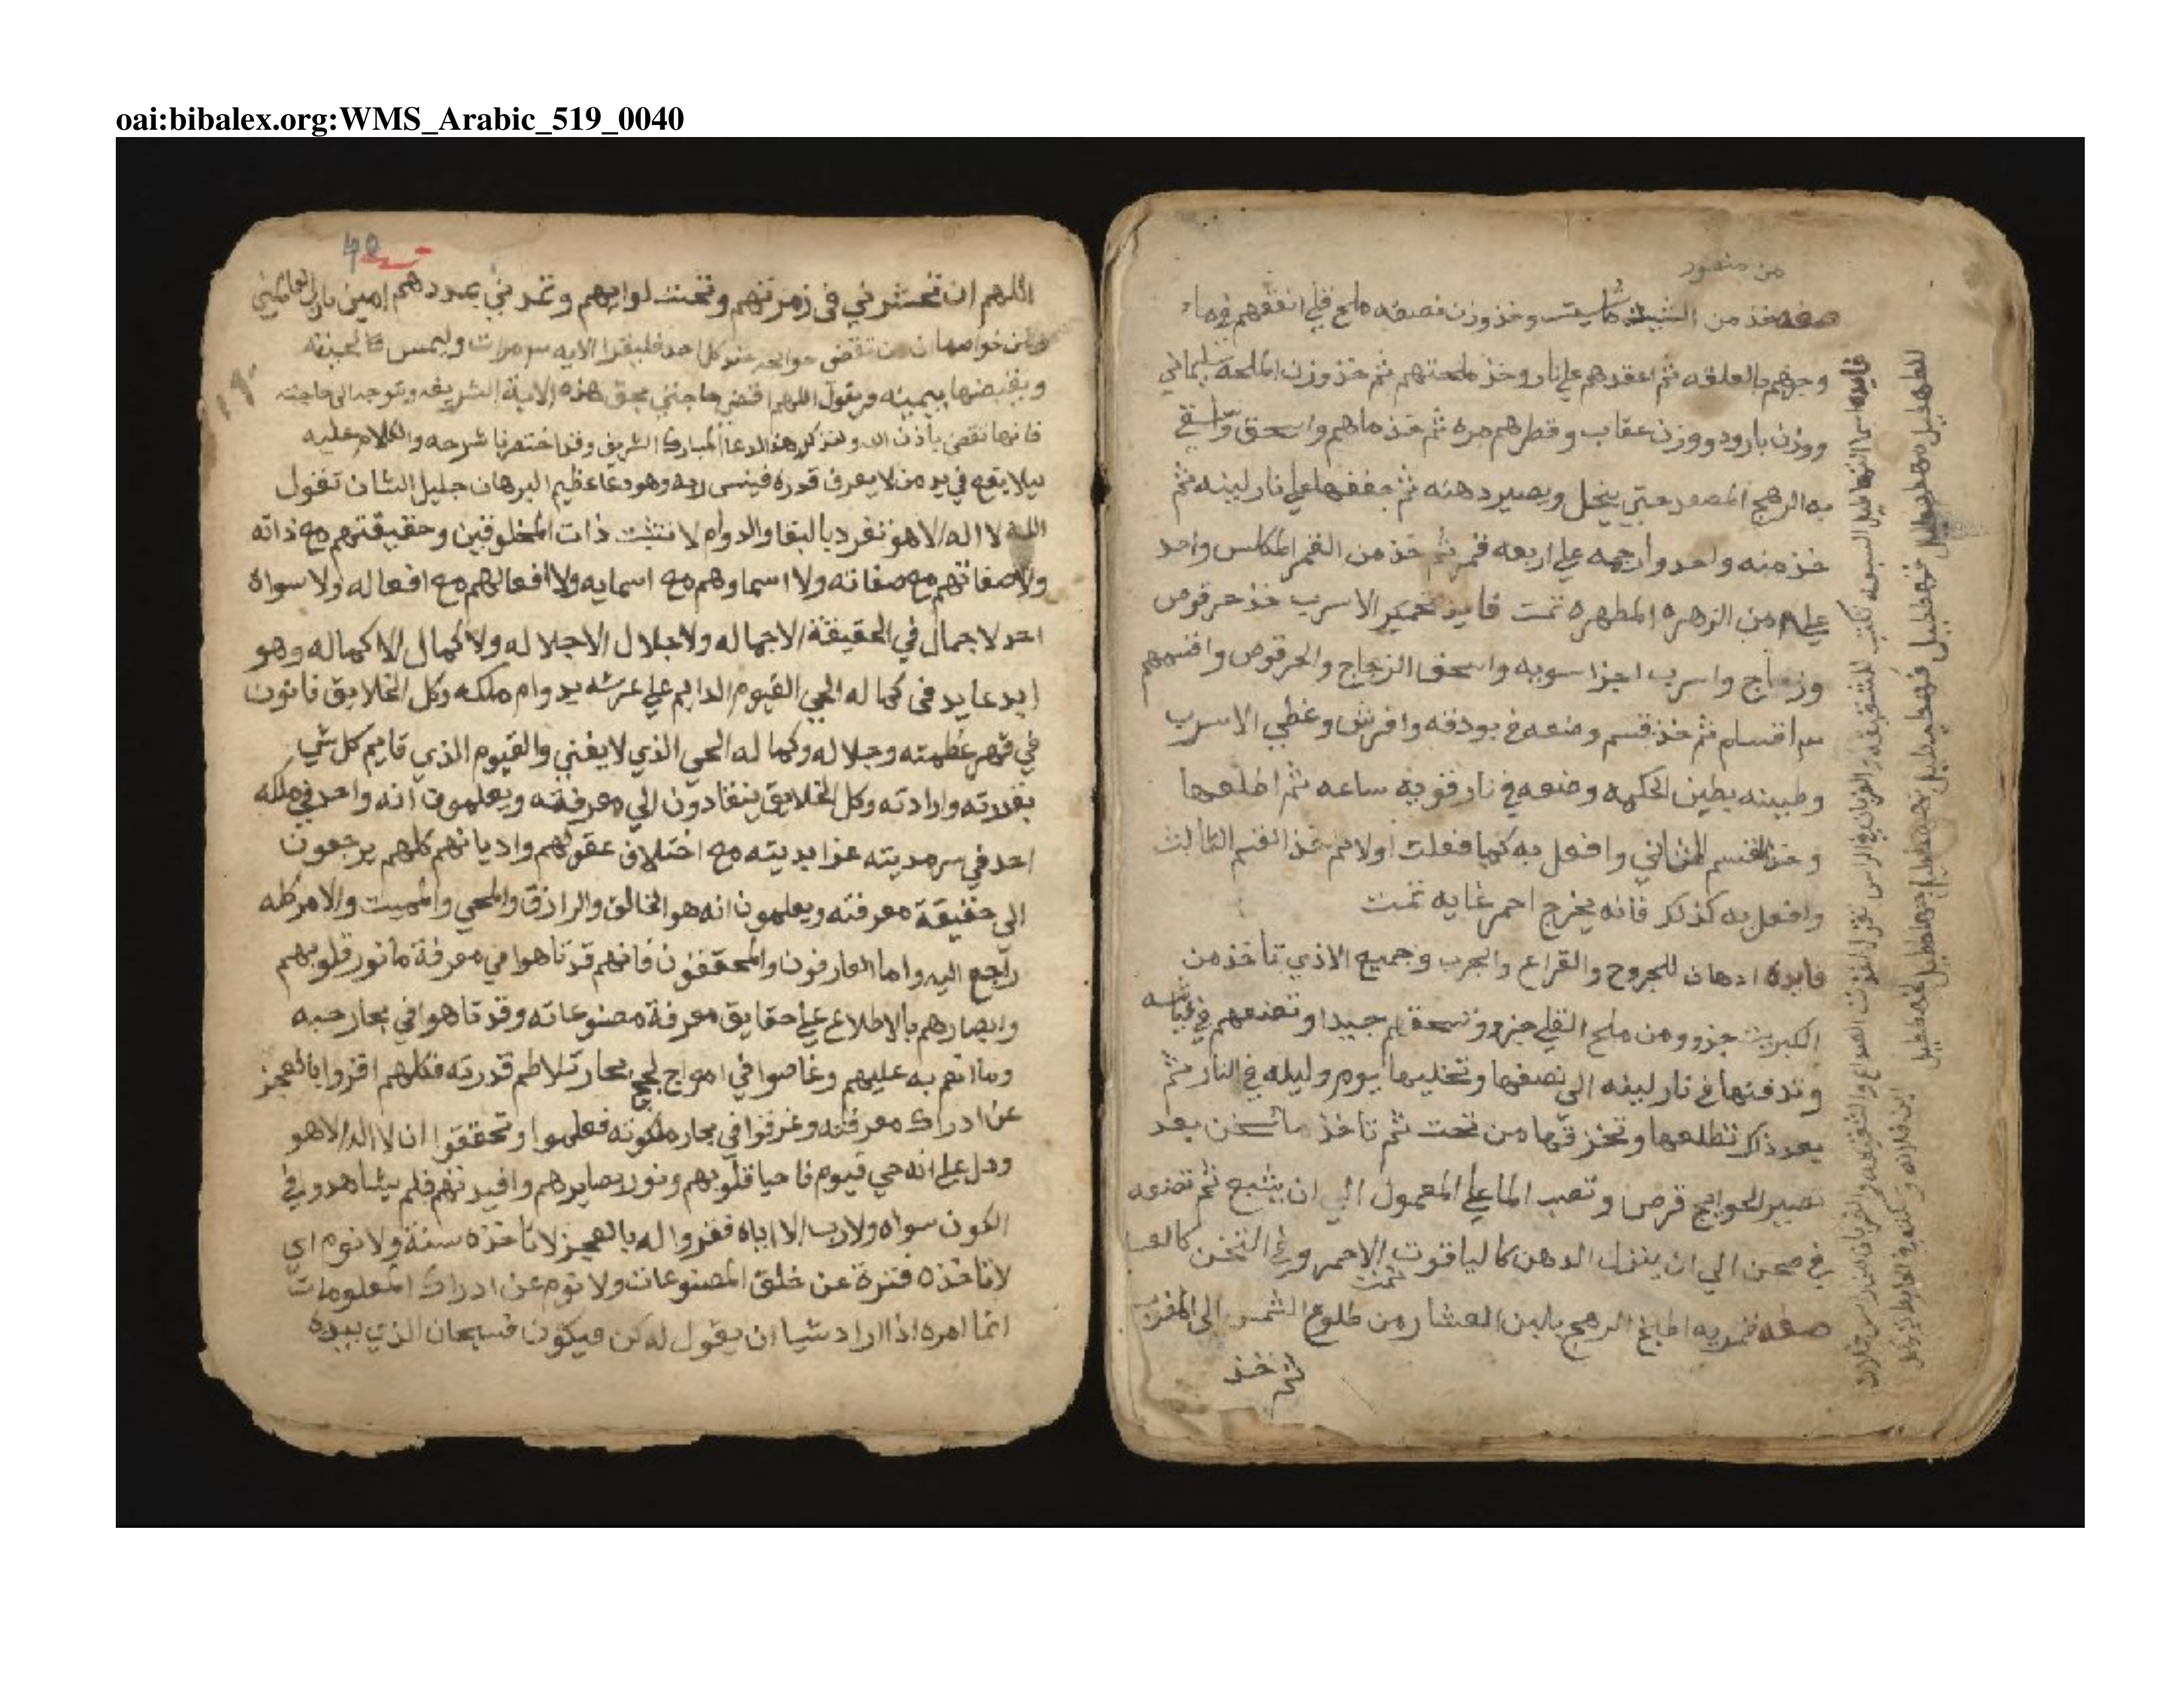 oai:bibalex.org:WMS_Arabic_519_0040
من منصور
صفه خذ من الشب ماشيت وخذ وزن نصفه ملح قلي انقعهم في ماء
وجرهم بالعلقه ثم اعقدهم علي نار وخذ ملحتهم ثم خذ وزن الملحه سليماني
ووزن بارود ووزن عقاب وقطرهم مره ثم خذ ماهم واسحق واسقي
به الرهج المصعد حتي ينحل ويصير دهنه ثم جففها علي نار لينه ثم
خذ منه واحد وارجمه علي اربعه قمر ثم خذ من القمر المكلس واحد
علي من الزهره المطهره تمت فايد تحمير الاسرب خذ حرقوص
وزجاج واسرب اجزا سويه واسحق الزجاج والحرقوص واقسمهم
اقسام ثم خذ قسم وضعه في بودقه وافرش وغطي الاسرب
وطبينه بطين الحكمه وضعه في نار قويه ساعه ثم اطلعها
وخذ القسم الثاني وافعل به كما فعلت اولا ثم خذ القسم الثالث
وافعل به كذلك فانه يخرج احمر غايه تمت
فايده ادهان للجروح والقراع والجرب وجميع الاذي تاخذ من
الكبريت جزو ومن ملح القلي جزو وتسحقهم جيدا وتضعهم في
وتدفنها في نار لينه الى نصفها وتخليها يوم وليله في النار ثم
بعد ذلك تطلعها وتخزقها من تحت ثم تاخذ ما سخن بعد
تصير الحوايج قرص وتصب الما علي المعمول الي ان يشبع ثم تضعه
في صحن الي ان ينزل الدهن كالياقوت الاحمر وفي التخن كالعسل
تمت
صفه قمريه اطبخ الرهج بالبن العشار من طلوع الشمس الى المغرب
ثم خذ
40
اللهم ان تحشرني في زمرتهم وتحت لوايهم وتمدني بمددهم امين يارب العالمين
ومن خواصها ان من تقضى حوايجه عند كل احد فليقرا الايه مرات
ويقبضها بيمينه ويقول اللهم اقض حاجتي بحق هذه الاية الشريفه وتوجه الى حاجته
فانها تقضى باذن الله ولنذكر هذا الدعا المبارك الشريف وقد اختصرنا شرحه والكلام عليه
ليلا يقع في يد من لا يعرف قدره فينسى ربه وهو دعا عظيم البرهان جليل الشان تقول
الله لا اله الا هو تفرد بالبقا والدوام لا تثبت ذات المخلوقين وحقيقتهم مع ذاته
ولا صفاتهم مع صفاته ولا اسماوهم مع اسمايه ولا افعالهم مع افعاله ولا سواه
احد لا جمال في الحقيقة الا جماله ولا جلال الا جلاله ولا كمال الا كماله وهو
ابد عايد في كماله الحي القيوم الدايم علي عرشه بدوام ملكه وكل الخلايق فانون
في قهر عظمته وجلاله وكماله الحي الذي لا يفني والقيوم الذي قايم كل شي
بقدرته وارادته وكل الخلايق ينقادون الي معرفته ويعلمون انه واحد في ملكه
احد في سرمديته عز ابديته مع اختلاف عقولهم واديانهم كلهم يرجعون
الي حقيقة معرفته ويعلمون انه هو الخالق والرازق والمحي والمميت والامر كله
راجع اليه واما العارفون والمحققون فانهم قد تاهوا في معرفة ما نور قلوبهم
وابصارهم بالاطلاع علي حقايق معرفة مصنوعاته وقد تاهوا في بحار حبه
وما انعم به عليهم وغاصوا في امواج لجج بحار تلاطم قدرته فكلهم اقروا بالعجز
عن ادراك معرفته وغرقوا في بحار ملكوته فعلموا وتحققوا ان لا اله الا هو
ودل علي انه حي قيوم فاحيا قلوبهم ونور بصايرهم وافيدتهم فلم يشاهدو في
الكون سواه ولا رب الا اياه فقروا له بالعجز لا تاخذه سنة ولا نوم اي
لا تاخذه فترة عن خلق المصنوعات ولا نوم عن ادراك المعلومات
انما امره اذا اراد شيا ان يقول له كن فيكون فسبحان الذي بيده